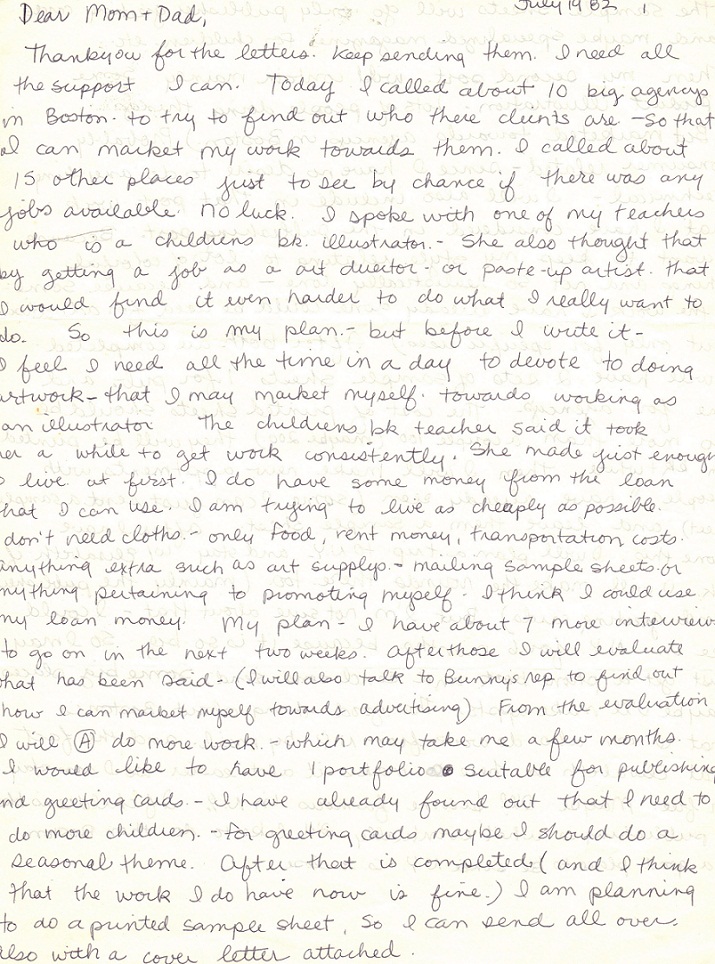 July 1982 1
Dear Mom + Dad,
Thankyou for the letters. Keep sending them. I need all
the support I can. Today I called about 10 big agencys
in Boston. to try to find out who there clients are - So that
I can market my work towards them. I called about
15 other places just to see by chance if there was any
jobs available. No luck. I spoke with one of my teachers
who is a childrens bk. illustrator. - She also thought that
by getting a job as a art director - or paste-up artist. that
I would find it even harder to do what I really want to
do. So this is my plan. - but before I write it -
I feel I need all the time in a day to devote to doing
artwork - that I may market myself. towards working as
an illustrator The childrens bk teacher said it took
her a while to get work consistently. She made just enough
to live at first. I do have some money from the loan
that I can use. I am trying to live as cheaply as possible.
don't need cloths. - only food, rent money, transportation costs.
anything extra such as art supplys. - mailing sample sheets or
anything pertaining to promoting myself - I think I could use
my loan money. My plan - I have about 7 more interviews
to go on in the next two weeks. After those I will evaluate
what has been said - (I will also talk to Bunny's rep to find out
how I can market myself towards advertising) From the evaluation
I will (A) do more work. - which may take me a few months.
I would like to have 1 portfolio suitable for publishing
and greeting cards. - I have already found out that I need to
do more children. - for greeting cards maybe I should do a
seasonal theme. After that is completed (and I think
that the work I do have now is fine.) I am planning
to do a printed sample sheet, So I can send all over.
also with a cover letter attached.